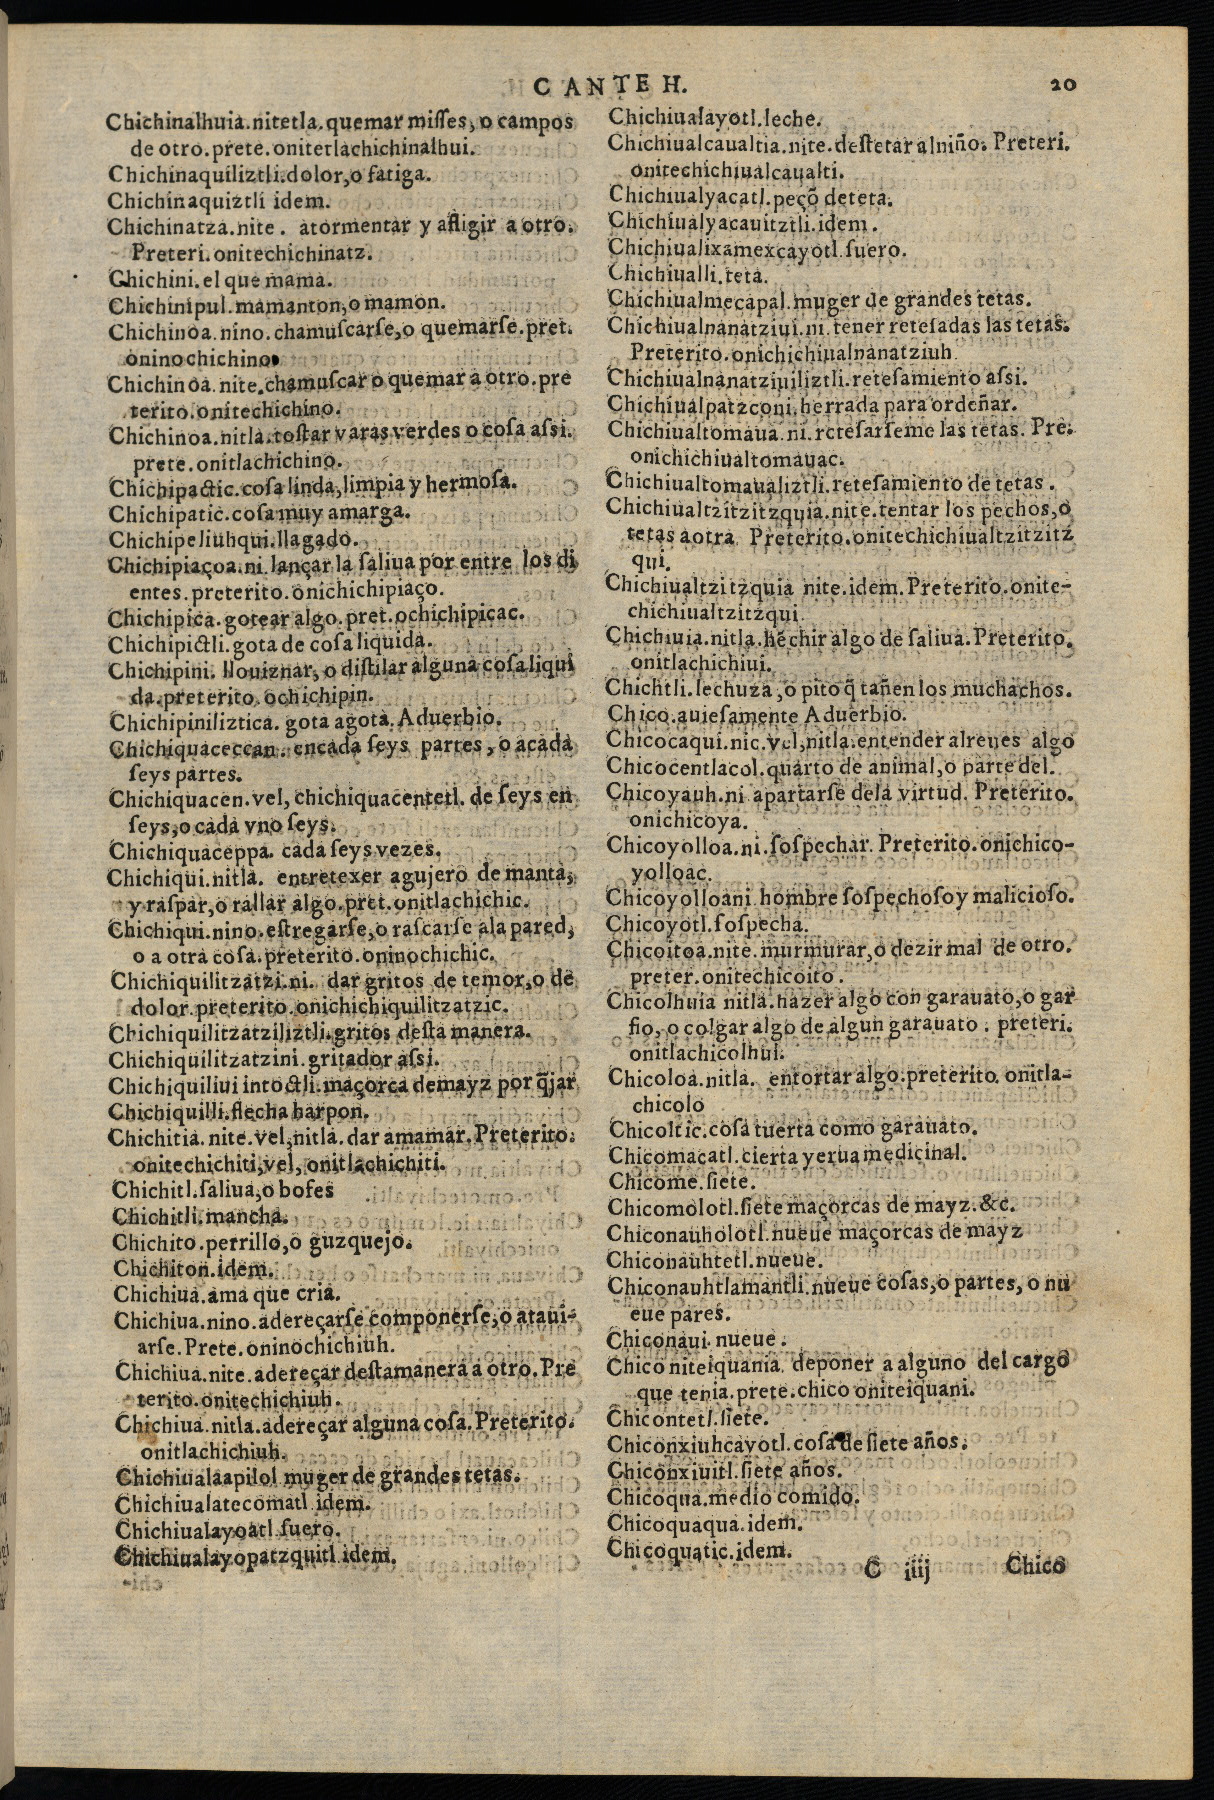 C ANTE H.
20
Chichinalhuia.nitetla.quemar misſes, o campos
de otro.prete.onitetlachichinalhui.
Chichinaquiliztli.dolor,o fatiga.
Chichinaquiztli idem.
Chichinatza.nite. atormentar y afligir a otro.
Preteri.onitechichinatz.
Chichini.el que mama.
Chichinipul.mamanton,o mamon.
Chichinoa.nino.chamuſcarſe,o quemarſe.pret.
oninochichino.
Chichinoa.nite.chamuſcar o quemar a otro.pre
terito.onitechichino.
Chichinoa.nitla.toſtar varas verdes o coſa aſsi.
prete.onitlachichino.
Chichipactic.coſa linda,limpia y hermoſa.
Chichipatic.coſa muy amarga.
Chichipeliuhqui.llagado.
Chichipiaçoa.ni.lançar la ſaliua por entre los di
entes.preterito.onichichipiaço.
Chichipica.gotear algo.pret.ochichipicac.
Chichipictli.gota de coſa liquida.
Chichipini. llouiznar, o diſtilar alguna coſa liqui
da.preterito.ochichipin.
Chichipiniliztica. gota agota. Aduerbio.
Chichiquaceccan. encada ſeys partes, o acada
ſeys partes.
Chichiquacen.vel, chichiquacentetl. de ſeys en
ſeys,o cada vno ſeys.
Chichiquaceppa. cada ſeys vezes.
Chichiqui.nitla. entretexer agujero de manta,
y raſpar,o rallar algo.pret.onitlachichic.
Chichiqui.nino.eſtregarſe,o raſcarſe ala pared,
o a otra coſa.preterito.oninochichic.
Chichiquilitzatzi.ni. dar gritos de temor,o de
dolor.preterito.onichichiquilitzatzic.
Chichiquilitzatziliztli.gritos deſta manera.
Chichiquilitzatzini.gritador aſsi.
Chichiquiliui intoctli.maçorca demayz por q̃jar
Chichiquilli.flecha harpon.
Chichitia. nite.vel,nitla.dar amamar.Preterito.
onitechichiti,vel, onitlachichiti.
Chichitl.ſaliua,o bofes
Chichitli.mancha.
Chichito.perrillo,o guzquejo.
Chichiton.idem.
Chichiua.ama que cria.
Chichiua.nino.adereçarſe componerſe,o ataui-
arſe.Prete.oninochichiuh.
Chichiua.nite.adereçar deſtamanera a otro.Pre
terito.onitechichiuh.
Chichiua.nitla.adereçar alguna coſa.Preterito.
onitlachichiuh.
Chichiualaapilol muger de grandes tetas.
Chichiualatecomatl.idem.
Chichiualayoatl.ſuero.
Chichiualayopatzquitl.idem.
Chichiualayotl.leche.
Chichiualcaualtia.nite.deſtetar alniño. Preteri.
onitechichiualcaualti.
Chichiualyacatl.peçõ deteta.
Chichiualyacauitztli.idem.
Chichiualixamexcayotl.ſuero.
Chichiualli.teta.
Chichiualmecapal.muger de grandes tetas.
Chichiualnanatziui.ni.tener reteſadas las tetas.
Preterito.onichichiualnanatziuh.
Chichiualnanatziuiliztli.reteſamiento aſsi.
Chichiualpatzconi.herrada para ordeñar.
Chichiualtomaua.ni.reteſarſeme las tetas. Pre.
onichichiualtomauac.
Chichiualtomaualiztli.reteſamiento de tetas.
Chichiualtzitzitzquia.nite.tentar los pechos,o
tetas aotra. Preterito.onitechichiualtzitzitz
qui.
Chichiualtzitzquia nite.idem.Preterito.onite-
chichiualtzitzqui
Chichiuia.nitla.hẽchir algo de ſaliua.Preterito.
onitlachichiui.
Chichtli.lechuza,o pito q̃ tañen los muchachos.
Chico.auieſamente Aduerbio.
Chicocaqui.nic.vel,nitla.entender alreues algo
Chicocentlacol.quarto de animal,o parte del.
Chicoyauh.ni apartarſe dela virtud. Preterito.
onichicoya.
Chicoyolloa.ni.ſoſpechar. Preterito.onichico-
yolloac.
Chicoyolloani hombre ſoſpechoſo y malicioſo.
Chicoyotl.ſoſpecha.
Chicoitoa.nite.murmurar,o dezir mal de otro.
preter.onitechicoito.
Chicolhuia nitla.hazer algo con garauato,o gar
fio, o colgar algo de algun garauato. preteri.
onitlachicolhui.
Chicoloa.nitla. entortar algo.preterito. onitla-
chicolo
Chicoltic.coſa tuerta como garauato.
Chicomacatl.cierta yerua medicinal.
Chicome.ſiete.
Chicomolotl.ſiete maçorcas de mayz.&c.
Chiconauholotl.nueue maçorcas de mayz
Chiconauhtetl.nueue.
Chiconauhtlamantli.nueue coſas,o partes, o nu
eue pares.
Chiconaui.nueue.
Chico niteiquania. deponer a alguno del cargo
que tenia.prete.chico oniteiquani.
Chicontetl.ſiete.
Chiconxiuhcayotl.coſa de ſiete años.
Chiconxiuitl.ſiete años.
Chicoqua.medio comido.
Chicoquaqua.idem.
Chicoquatic.idem.
C iiij Chico